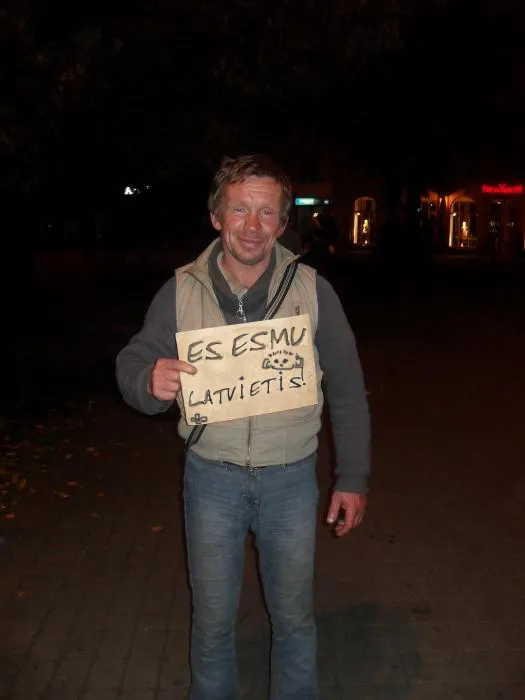 ES ESMU
LATVIETIS.